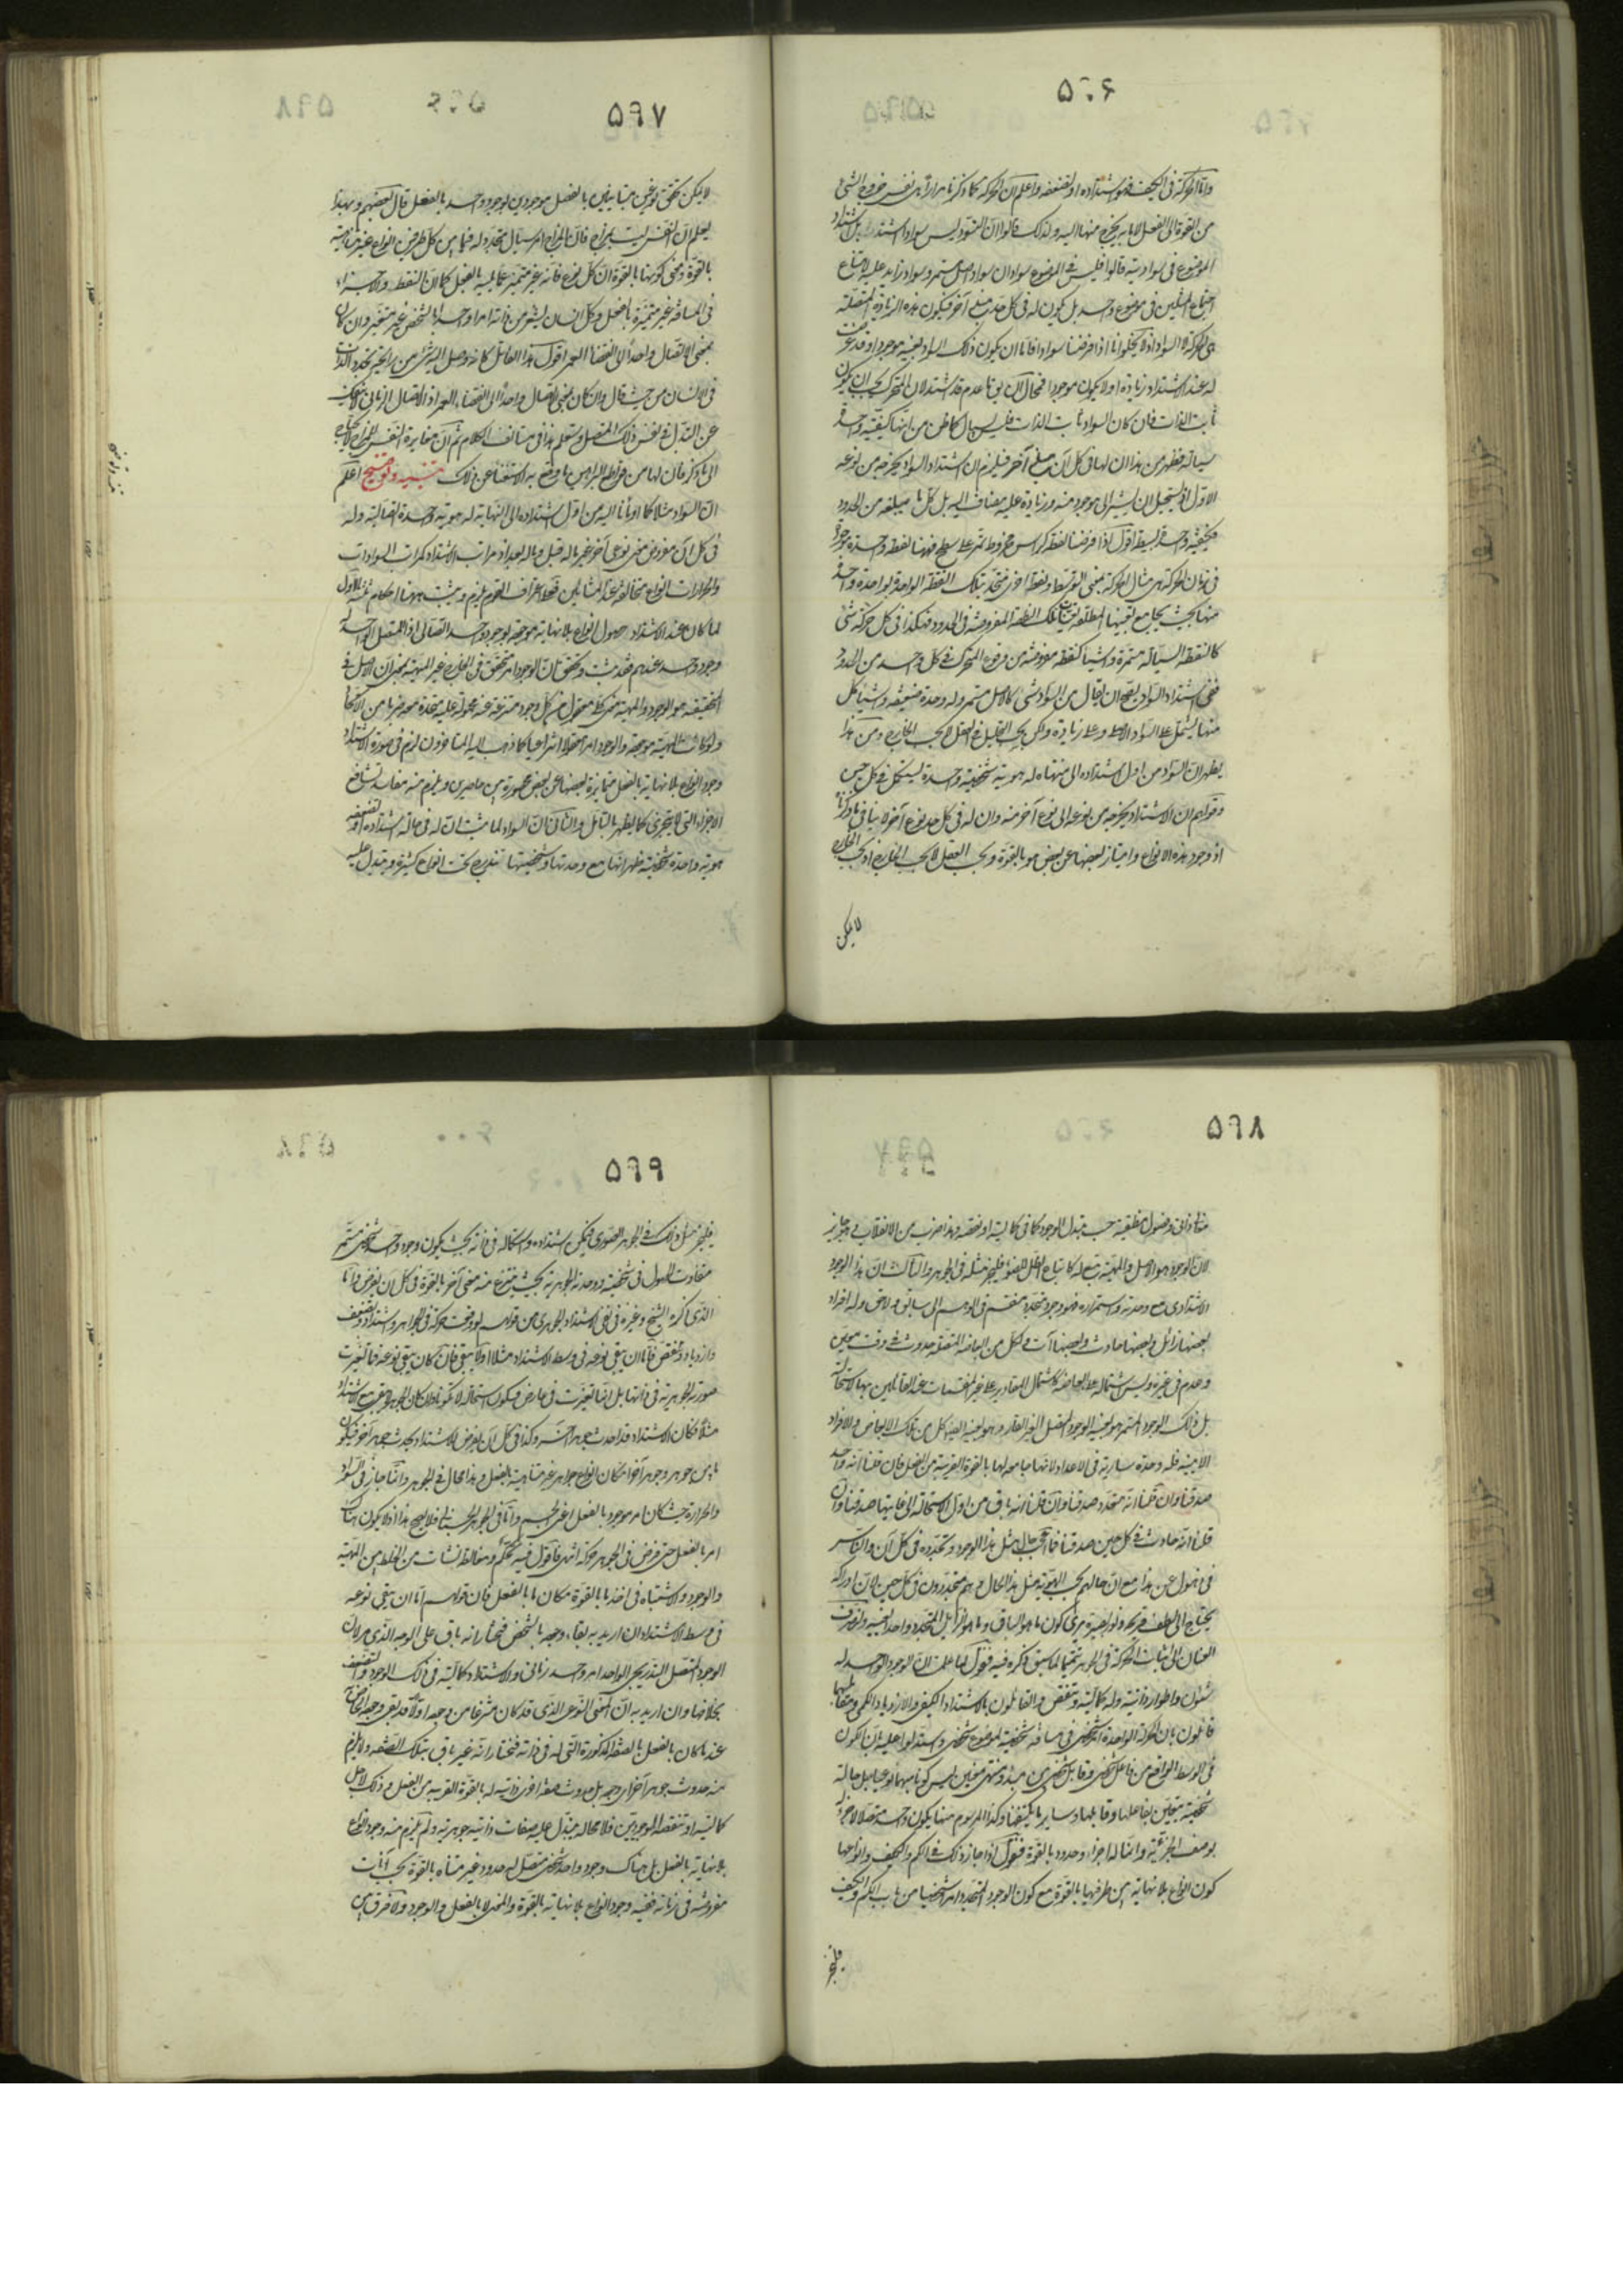 ۵۹۶
واما الحركة فى الكيف فهو اشتداده او تضعفه واعلم ان الحركة كما ذكرنا مرارا هى نفس خروج الشئ
من القوة الى الفعل لا ما به يخرج منها اليه ولذلك قالوا ان التسود ليس سوادا اشتد بل اشتداد
الموضوع فى سواديته قالوا فليس فى الموضوع سوادان سواد اصل مستمر وسواد زايد عليه لامتناع
اجتماع المثلين فى موضوع واحد بل يكون له فى كل حد مبلغ آخر فيكون هذه الزيادة المتصلة
هى الحركة لا السواد اذ لا يخلو اما اذا فرضنا سوادا فاما ان يكون ذلك السواد بعينه موجودا وقد عرضت
له عند الاشتداد زيادة او لا يكون موجودا فمحال ان يقال ما عدم قد اشتد لان المتحرك يجب ان يكون
ثابت الذات فان كان السواد ثابت الذات فليس بسيال كما ظن من انها كيفية واحدة
سيالة فظهر من هذا ان لها فى كل آن مبلغ آخر فيلزم ان اشتداد السواد يخرجه من نوعه
الاول اذ يستحيل ان يشير الى موجود منه وزيادة عليه مضاف اليه بل كل ما يبلغه من الحدود
فكيفية واحدة بسيطة اقول اذا فرضنا نقطة كرأس مخروط تمر على سطح فهنا نقطة واحدة موجودة
فى زمان الحركة هى مثال الحركة بمعنى التوسط ونقط اخرى متحدة بتلك النقطة الواحدة لو احد
منها بحيث يجامع تعينها المطلقه تعينات تلك النقطة المفروضة فى الحدود فهكذا فى كل حركة شئ
كالنقطة السيالة مستمرة واشياء كنقطة مفروضة من فروع المتحرك فى كل واحد من الحدود
ففى اشتداد السواد يصح ان يقال من السواد شئ كالاصل مستمر وله وحدة ضعيفة واشياء كل
منها يشتمل على السواد الاصل وعلى زيادة ولكن بحسب التحليل فى العقل لا بحسب الخارج ومن هذا
يظهر ان السواد من اول اشتداده الى منتهاه له هوية شخصية واحدة يستكمل فى كل حين
وقولهم ان الاشتداد يخرجه من نوعه الى نوع آخر منه وان له فى كل حد نوع آخر لا ينافى ما ذكرنا
اذ وجود هذه الانواع وامتياز بعضها عن بعض هو بالقوة وبحسب العقل لا بحسب الخارج اذ بحسب الخارج
لا يمكن
۵۹۷
لا يمكن تحقق نوعين متباينين بالفعل موجودين بوجود واحد بالفعل قال بعضهم وبهذا
يعلم ان النفس ليست بمزاج فان المزاج امر سيال متجدد له فيما بين كل طرفين انواع غير متناهية
بالقوة ومعنى كونها بالقوة ان كل نوع فانه غير متميز عما يليه بالفعل كما ان النقط والاجزاء
فى المسافة غير متميزة بالفعل وكل انسان يشعر من ذاته امرا واحدا بالشخص غير متغير وان كان
بمعنى الاتصال واحدا الى انقضاء العمر اقول هذا القائل كانه وصل اليه شئ من رايحة تجدد الذات
فى الانسان من حيث قال وان كان بمعنى الاتصال واحدا الى انقضاء العمر اذ الاتصال الزمانى لا ينفك
عن التبدل فى نفس ذلك المتصل وستعلم هذا فى مستأنف الكلام ثم ان مغايرة النفس للمزاج لا يحتاج
الى ما ذكر فان لها من قواطع البراهين ما وقع به الاستغناء عن ذلك تنبيه وتوضيح اعلم
ان السواد مثلا كما اومأنا اليه من اول اشتداده الى النهاية له هوية واحدة اتصالية وله
فى كل آن مفروض معنى نوعى آخر غير ما له قبل وما له بعد اذ مراتب الاشتداد كمراتب السوادات
والحرارات انواع متخالفة عند المشائين فعلى اعتراف القوم يلزم ويثبت ههنا احكام ثلثة الاول
لما كان عند الاشتداد حصول انواع بلا نهاية موجودة بوجود واحد اتصالى اذ المتصل الواحد له
وجود واحد عندهم فقد ثبت وتحقق ان الوجود امر متحقق فى الخارج غير المهية بمعنى ان الاصل فى
الحقيقة هو الوجود والمهية معنى كلى معقول من كل وجود منتزعة عنه محمولة عليه متحدة معه ضربا من الاتحاد
ولو كانت المهية موجودة والوجود امرا معقولا انتزاعيا كما ذهب اليه المتاخرون لزم فى صورة الاشتداد
وجود انواع بلا نهاية بالفعل متمايزة بعضها عن بعض محصورة بين حاصرين ويلزم منه مفاسد تشافع
الاجزاء التى لا تتجزى كما يظهر بالتأمل والثانى ان السواد لما ثبت ان له فى حالة اشتداده او تضعفه
هوية واحدة شخصية ظهر انها مع وحدتها وشخصيتها تندرج تحت انواع كثيرة ويتبدل عليه
۵۹۸
معان ذاتية وفصول منطقية حسب تبدل الوجود كما فى كماليته او نقصه وهذا ضرب من الانقلاب وهو جايز
لان الوجود هو الاصل والمهية تبع له كاتباع الظل للضوء فليجز مثله فى الجوهر والثالث ان هذا الوجود
الاشتدادى مع وحدته واستمراره فهو وجود متجدد منقسم فى الوهم الى سابق ولاحق وله افراد
بعضها زائل وبعضها حادث وبعضها آت ولكل من ابعاضه المتصلة حدوث فى وقت معين
وعدم فى غيره وليس اشتماله على ابعاضه كاشتمال المقادير على غير المنقسمات عند القائلين بها لاستحالته
بل ذلك الوجود المستمر هو بعينه الوجود المتصل الغير القار وهو بعينه ايضا كل من تلك الابعاض والافراد
الآنية فله وحدة سارية فى الاعداد لانها جامعة لها بالقوة القريبة من الفعل فان قلنا انه واحد
صدقنا وان قلنا انه متعدد صدقنا وان قلنا انه باق من اول الاستحالة الى غايتها صدقنا وان
قلنا انه حادث فى كل حين صدقنا فما اعجب حال مثل هذا الوجود وتجدده فى كل آن والناس
فى ذهول عن هذا مع ان حالهم بحسب الهوية مثل هذا الحال وهم متجددون فى كل حين لان ادراكه
يحتاج الى لطف قريحة ونور بصيرة يرى كون ما هو الباقى وما هو الزايل المتجدد واحدا بعينه ولنصرف
العنان الى اثبات الحركة فى الجوهر تتميما لما سبق ذكره فيه فنقول لما علمت ان الوجود الواحد له
شئون واطوار ذاتية وله كمالية وتنقص والقائلون بالاشتداد الكيفى والازدياد الكمى ومقابليهما
قائلون بان الحركة الواحدة امر شخصى فى مسافة شخصية لموضوع شخصى واستدلوا عليه بان الكون
فى الوسط الواقع من فاعل شخصى وقابل شخصى بين مبدء ومنتهى معينين ليس كونا مبهما نوعيا بل حالة
شخصية يتعين بفاعلها وقابلها وساير ما يكتنفها وكذا المرسوم منها يكون واحدا متصلا لا جزء له
بوصف الجزئية وانما له اجزاء وحدود بالقوة فنقول اذا جاز ذلك فى الكم والكيف وانواعهما
كون انواع بلا نهاية بين طرفيها بالقوة مع كون الوجود المتجدد امرا شخصيا من باب الكم والكيف
فليجز
۵۹۹
فليجز مثل ذلك فى الجوهر الصورى فيمكن اشتداده واستكماله فى ذاته بحيث يكون وجود واحد شخصى مستمر
متفاوت الحصول فى شخصيته ووحدته الجوهرية بحيث ينتزع منه معنى آخر بالقوة فى كل آن يفرض واما
الذى ذكره الشيخ وغيره فى نفى الاشتداد الجوهرى من قولهم لو وقعت حركة فى الجواهر واشتداد وتضعف
وازدياد وتنقص فاما ان يبقى نوعه فى وسط الاشتداد مثلا او لا يبقى فان كان يبقى نوعه فما تغيرت
صورته الجوهرية فى ذاتها بل انما تغيرت فى عارض فيكون استحالة لا تكونا وان كان الجوهر لا يبقى مع الاشتداد
مثلا فكان الاشتداد قد احدث جوهرا آخر وكذا فى كل آن يفرض للاشتداد يحدث جوهر آخر فيكون
ما بين جوهر وجوهر آخر امكان انواع جواهر غير متناهية بالفعل وهذا محال فى الجوهر وانما جاز فى السواد
والحرارة حيث كان امر موجود بالفعل اعنى الجسم واما فى الجوهر الجسمانى فلا يصح هذا اذ لا يكون هناك
امر بالفعل حتى فرض فى الجوهر حركة انتهى فاقول فيه تحكم ومغالطة نشأت من الخلط بين المهية
والوجود والاشتباه فى اخذ ما بالقوة مكان ما بالفعل فان قولهم اما ان يبقى نوعه
فى وسط الاشتداد ان اريد به بقاء وجوده بالشخص فنختار انه باق على الوجه الذى مر لان
الوجود المتصل التدريجى الواحد امر واحد زمانى والاشتداد كمالية فى ذلك الوجود والتضعف
بخلافها وان اريد به ان المعنى النوعى الذى قد كان منتزعا من وجوده اولا قد بقى وجوده الخاص
عند ما كان بالفعل بالصفة المذكورة التى له فى ذاته فنختار انه غير باق بتلك الصفة ولا يلزم
منه حدوث جوهر آخر اى وجوده بل حدوث صفة اخرى ذاتية له بالقوة القريبة من الفعل وذلك لاجل
كماليته او تنقصه الوجوديين فلا محالة يتبدل عليه صفات ذاتية جوهرية ولم يلزم منه وجود انواع
بلا نهاية بالفعل بل هناك وجود واحد شخصى متصل له حدود غير متناهية بالقوة بحسب آنات
مفروضة فى زمانه ففيه وجود انواع بلا نهاية بالقوة والمعنى لا بالفعل والوجود ولا فرق بين